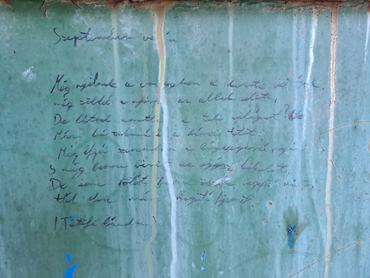 Szeptember végén
Még nyílnak a völgyben a kerti virágok,
még zöldell a nyárfa az ablak előtt,
De látod amottan a téli világot?
Már hó takará el a bérci tetőt.
Még ifjú szivemben a lángsugarú nyár
S még benne virít az egész kikelet,
De íme sötét hajam őszbe vegyül már,
A tél dere már megüté fejemet.
(Petőfi Sándor)